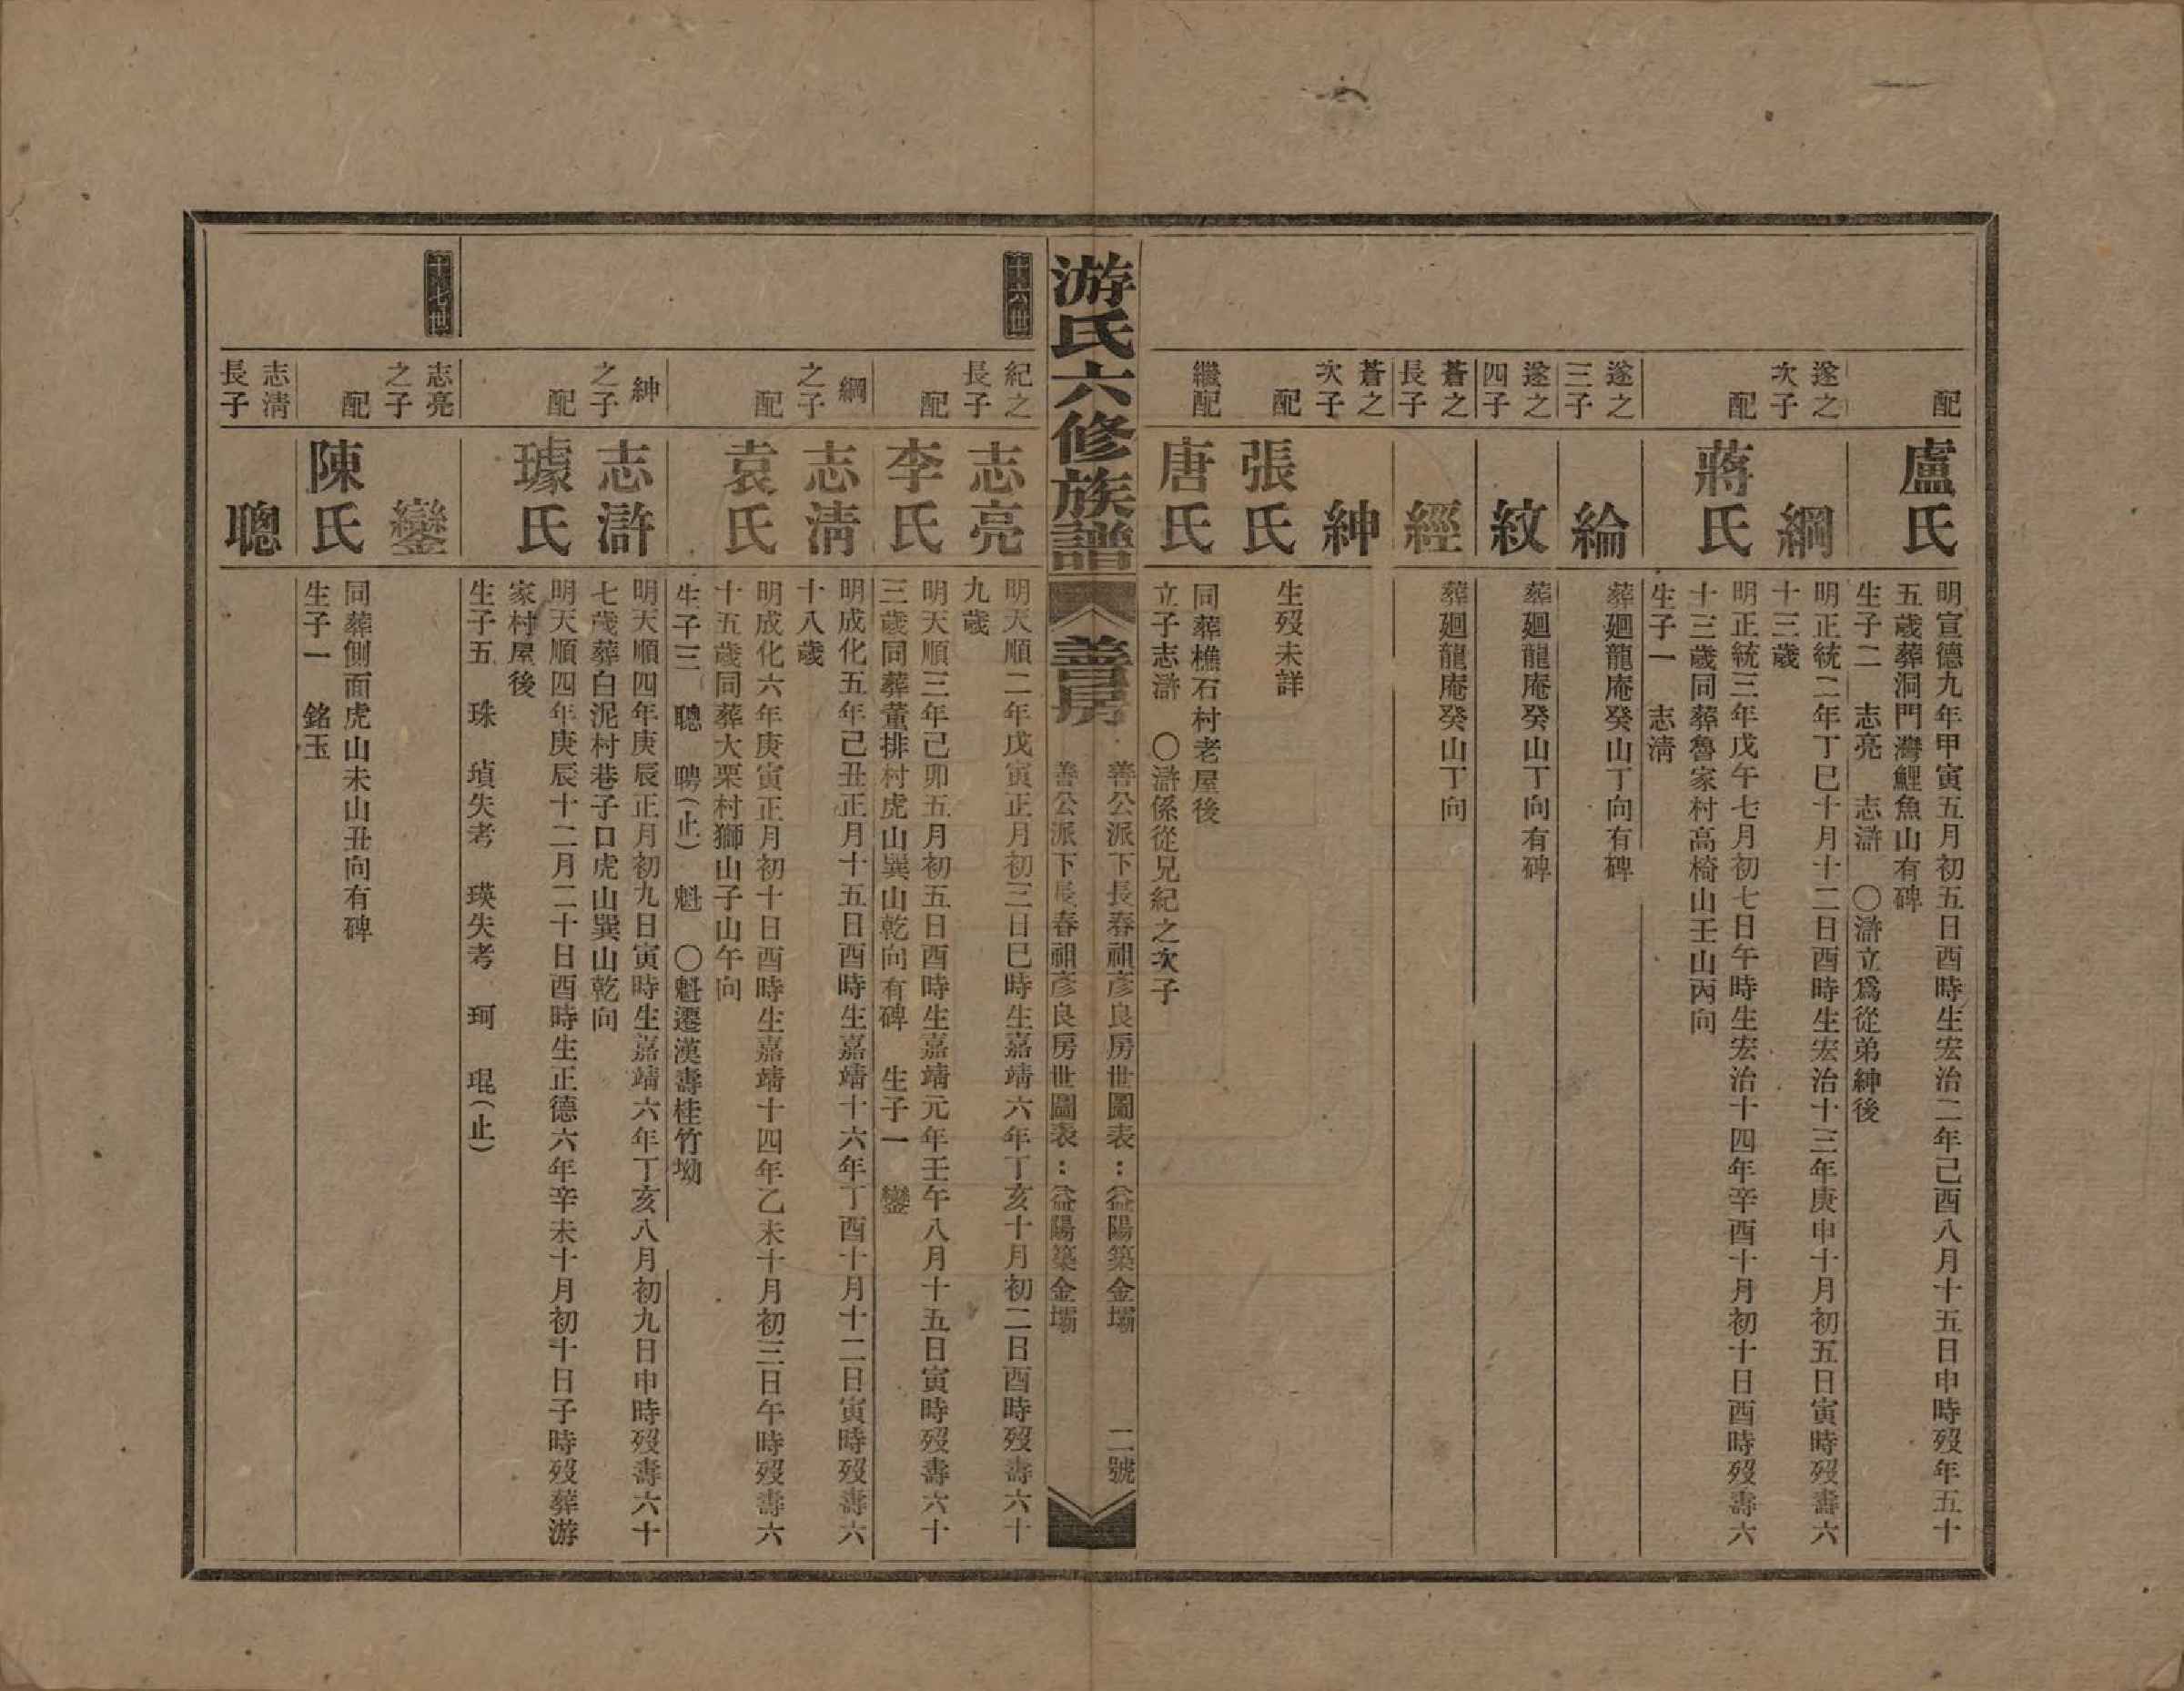 配
盧氏
明宣德九年甲寅五月初五日酉時生宏治二年己酉八月十五日申時歿年五十
五歲葬洞門灣鯉魚山有碑
生子二　志亮　志滸　〇滸立爲從弟紳後
遂之
次子
綱
明正統二年丁巳十月十二日酉時生宏治十三年庚申十月初五日寅時歿壽六
十三歲
配
蔣氏
明正統三年戊午七月初七日午時生宏治十四年辛酉十月初十日酉時歿壽六
十三歲同葬魯家村高椅山壬山丙向
生子一　志淸
遂之
三子
綸
葬廻龍庵癸山丁向有碑
遂之
四子
紋
葬廻龍庵癸山丁向有碑
蒼之
長子
經
葬廻龍庵癸山丁向
蒼之
次子
紳
配
張氏
生歿未詳
繼配
唐氏
同葬樵石村老屋後
立子志滸　〇滸係從兄紀之次子
游氏六修族譜
善房
善公派下長春祖彥良房世圖表：(益陽築金壩
二號
善公派下長春祖彥良房世圖表：(益陽築金壩
十六世
紀之
長子
志亮
明天順二年戊寅正月初三日巳時生嘉靖六年丁亥十月初二日酉時歿壽六十
九歲
配
李氏
明天順三年己卯五月初五日酉時生嘉靖元年壬午八月十五日寅時歿壽六十
三歲同葬董排村虎山巽山乾向有碑　生子一　鑾
綱
之子
志淸
明成化五年己丑正月十五日酉時生嘉靖十六年丁酉十月十二日寅時歿壽六
十八歲
配
袁氏
明成化六年庚寅正月初十日酉時生嘉靖十四年乙未十月初三日午時歿壽六
十五歲同葬大栗村獅山子山午向
生子三　聰　聘(止)　魁　〇魁遷漢壽桂竹坳
紳
之子
志滸
明天順四年庚辰正月初九日寅時生嘉靖六年丁亥八月初九日申時歿壽六十
七歲葬白泥村巷子口虎山巽山乾向
配
璩氏
明天順四年庚辰十二月二十日酉時生正德六年辛未十月初十日子時歿葬游
家村屋後
生子五　珠　瑱失考　瑛失考　珂　琨(止)
十七世
志亮
之子
鑾
配
陳氏
同葬側面虎山未山丑向有碑
生子一　銘玉
志淸
長子
聰